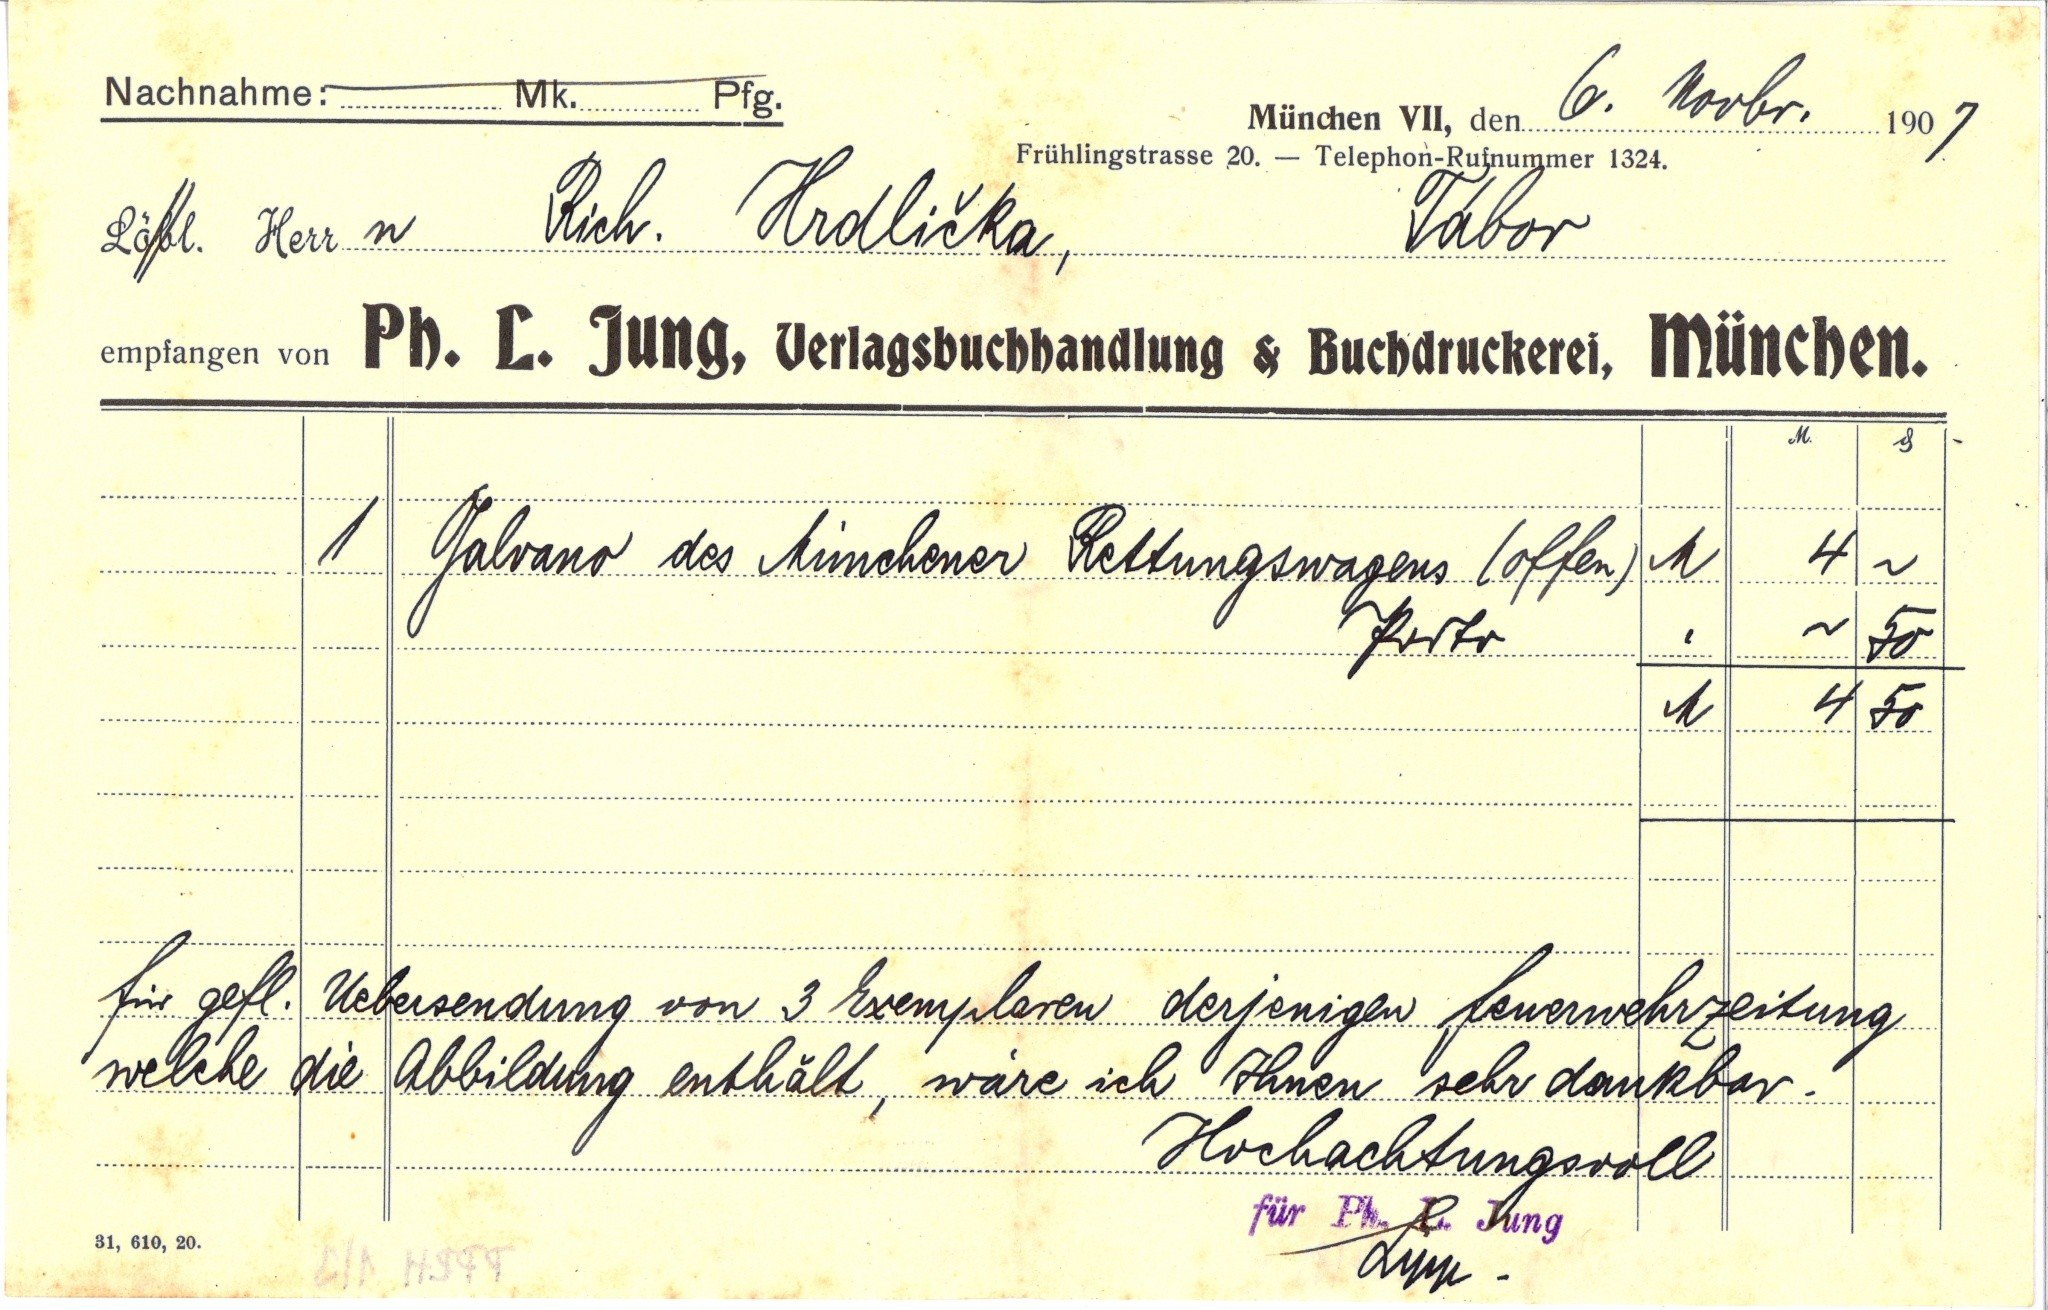 Nachnahme: Mk. Pfg.
München VII, den 6. Novbr. 1907
Frühlingstrasse 20. — Telephon-Rufnummer 1324.
Löbl. Herr n Rich. Hrdlička, Tábor
empfangen von Ph. L. Jung, Verlagsbuchhandlung & Buchdruckerei, München.
M. ₰
1 Galvano des Münchener Rettungswagens (offen) M 4 ~
Porto " ~ 50
M 4 50
für gefl. Uebersendung von 3 Exemplaren derjenigen Feuerwehrzeitung
welche die Abbildung enthält, wäre ich Ihnen sehr dankbar.
Hochachtungsvoll
für Ph. L. Jung
31, 610, 20.